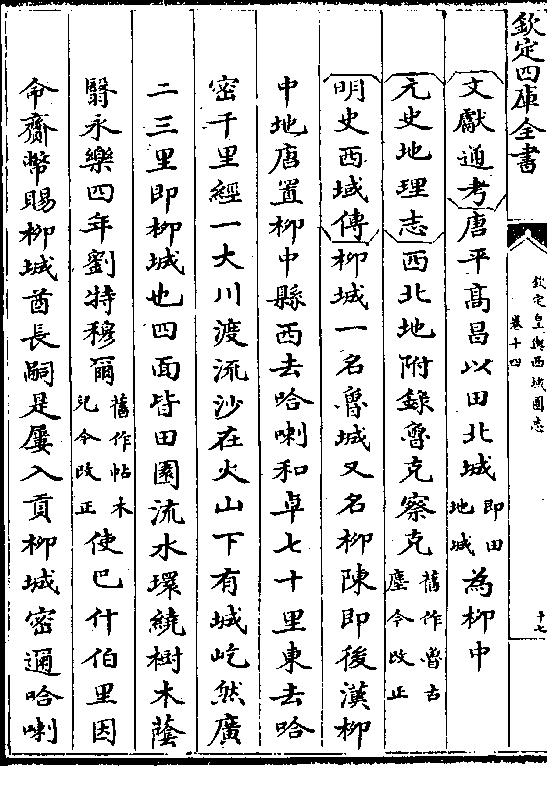 欽定四庫全書
欽定皇輿西域圖志
卷十四
十七
文獻通考唐平高昌以田北城即田地城為柳中
元史地理志西北地附錄魯克察克舊作魯古塵今改正
明史西域傳柳城一名魯城又名柳陳即後漢柳
中地唐置柳中縣西去哈喇和卓七十里東去哈
密千里經一大川渡流沙在火山下有城屹然廣
二三里即柳城也四面皆田園流水環繞樹木蔭
翳永樂四年劉特穆爾舊作帖木兒今改正使巴什伯里因
命齎幣賜柳城酋長嗣是屢入貢柳城密邇哈喇